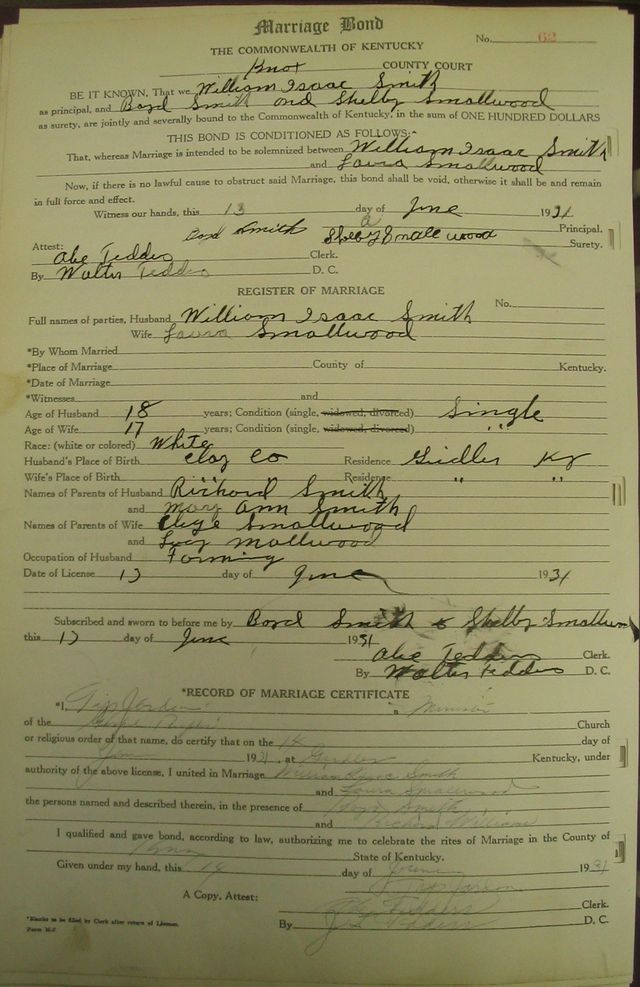 Marriage Bond
No. 62
THE COMMONWEALTH OF KENTUCKY
Knox COUNTY COURT
BE IT KNOWN, That we William Isaac Smith
as principal, and Boyd Smith and Shelby Smallwood
as surety, are jointly and severally bound to the Commonwealth of Kentucky, in the sum of ONE HUNDRED DOLLARS
THIS BOND IS CONDITIONED AS FOLLOWS:
That, whereas Marriage is intended to be solemnized between William Isaac Smith
and Laura Smallwood
Now, if there is no lawful cause to obstruct said Marriage, this bond shall be void, otherwise it shall be and remain
in full force and effect.
Witness our hands, this 13 day of June 1931
Boyd Smith Shelby Smallwood Principal.
Attest: Surety.
Abe Tedders Clerk.
By Walter Tedders D. C.
REGISTER OF MARRIAGE
No.
Full names of parties, Husband William Isaac Smith
Wife Laura Smallwood
*By Whom Married
*Place of Marriage County of Kentucky.
*Date of Marriage
*Witnesses and
Age of Husband 18 years; Condition (single, widowed, divorced) Single
Age of Wife 17 years; Condition (single, widowed, divorced) " "
Race: (white or colored) White
Husband's Place of Birth Clay Co Residence Girdler Ky
Wife's Place of Birth Residence " "
Names of Parents of Husband Richard Smith
and Mary Ann Smith
Names of Parents of Wife Smallwood
and Lucy
Occupation of Husband Farming
Date of License 13 day of June 1931
Subscribed and sworn to before me by Boyd Smith & Shelby Smallwood
this 13 day of June 1931
Abe Tedders Clerk.
By Walter Tedders D. C.
*RECORD OF MARRIAGE CERTIFICATE
*I, a Minister
of the Church
or religious order of that name, do certify that on the 14 day of
1931, at Girdler Kentucky, under
authority of the above license, I united in Marriage William Isaac Smith
and Laura Smallwood
the persons named and described therein, in the presence of Boyd Smith
and Richard Williams
I qualified and gave bond, according to law, authorizing me to celebrate the rites of Marriage in the County of
Knox State of Kentucky.
Given under my hand, this 14 day of June 1931
A Copy, Attest:
Clerk.
By D. C.
*Blanks to be filled by Clerk after return of License.